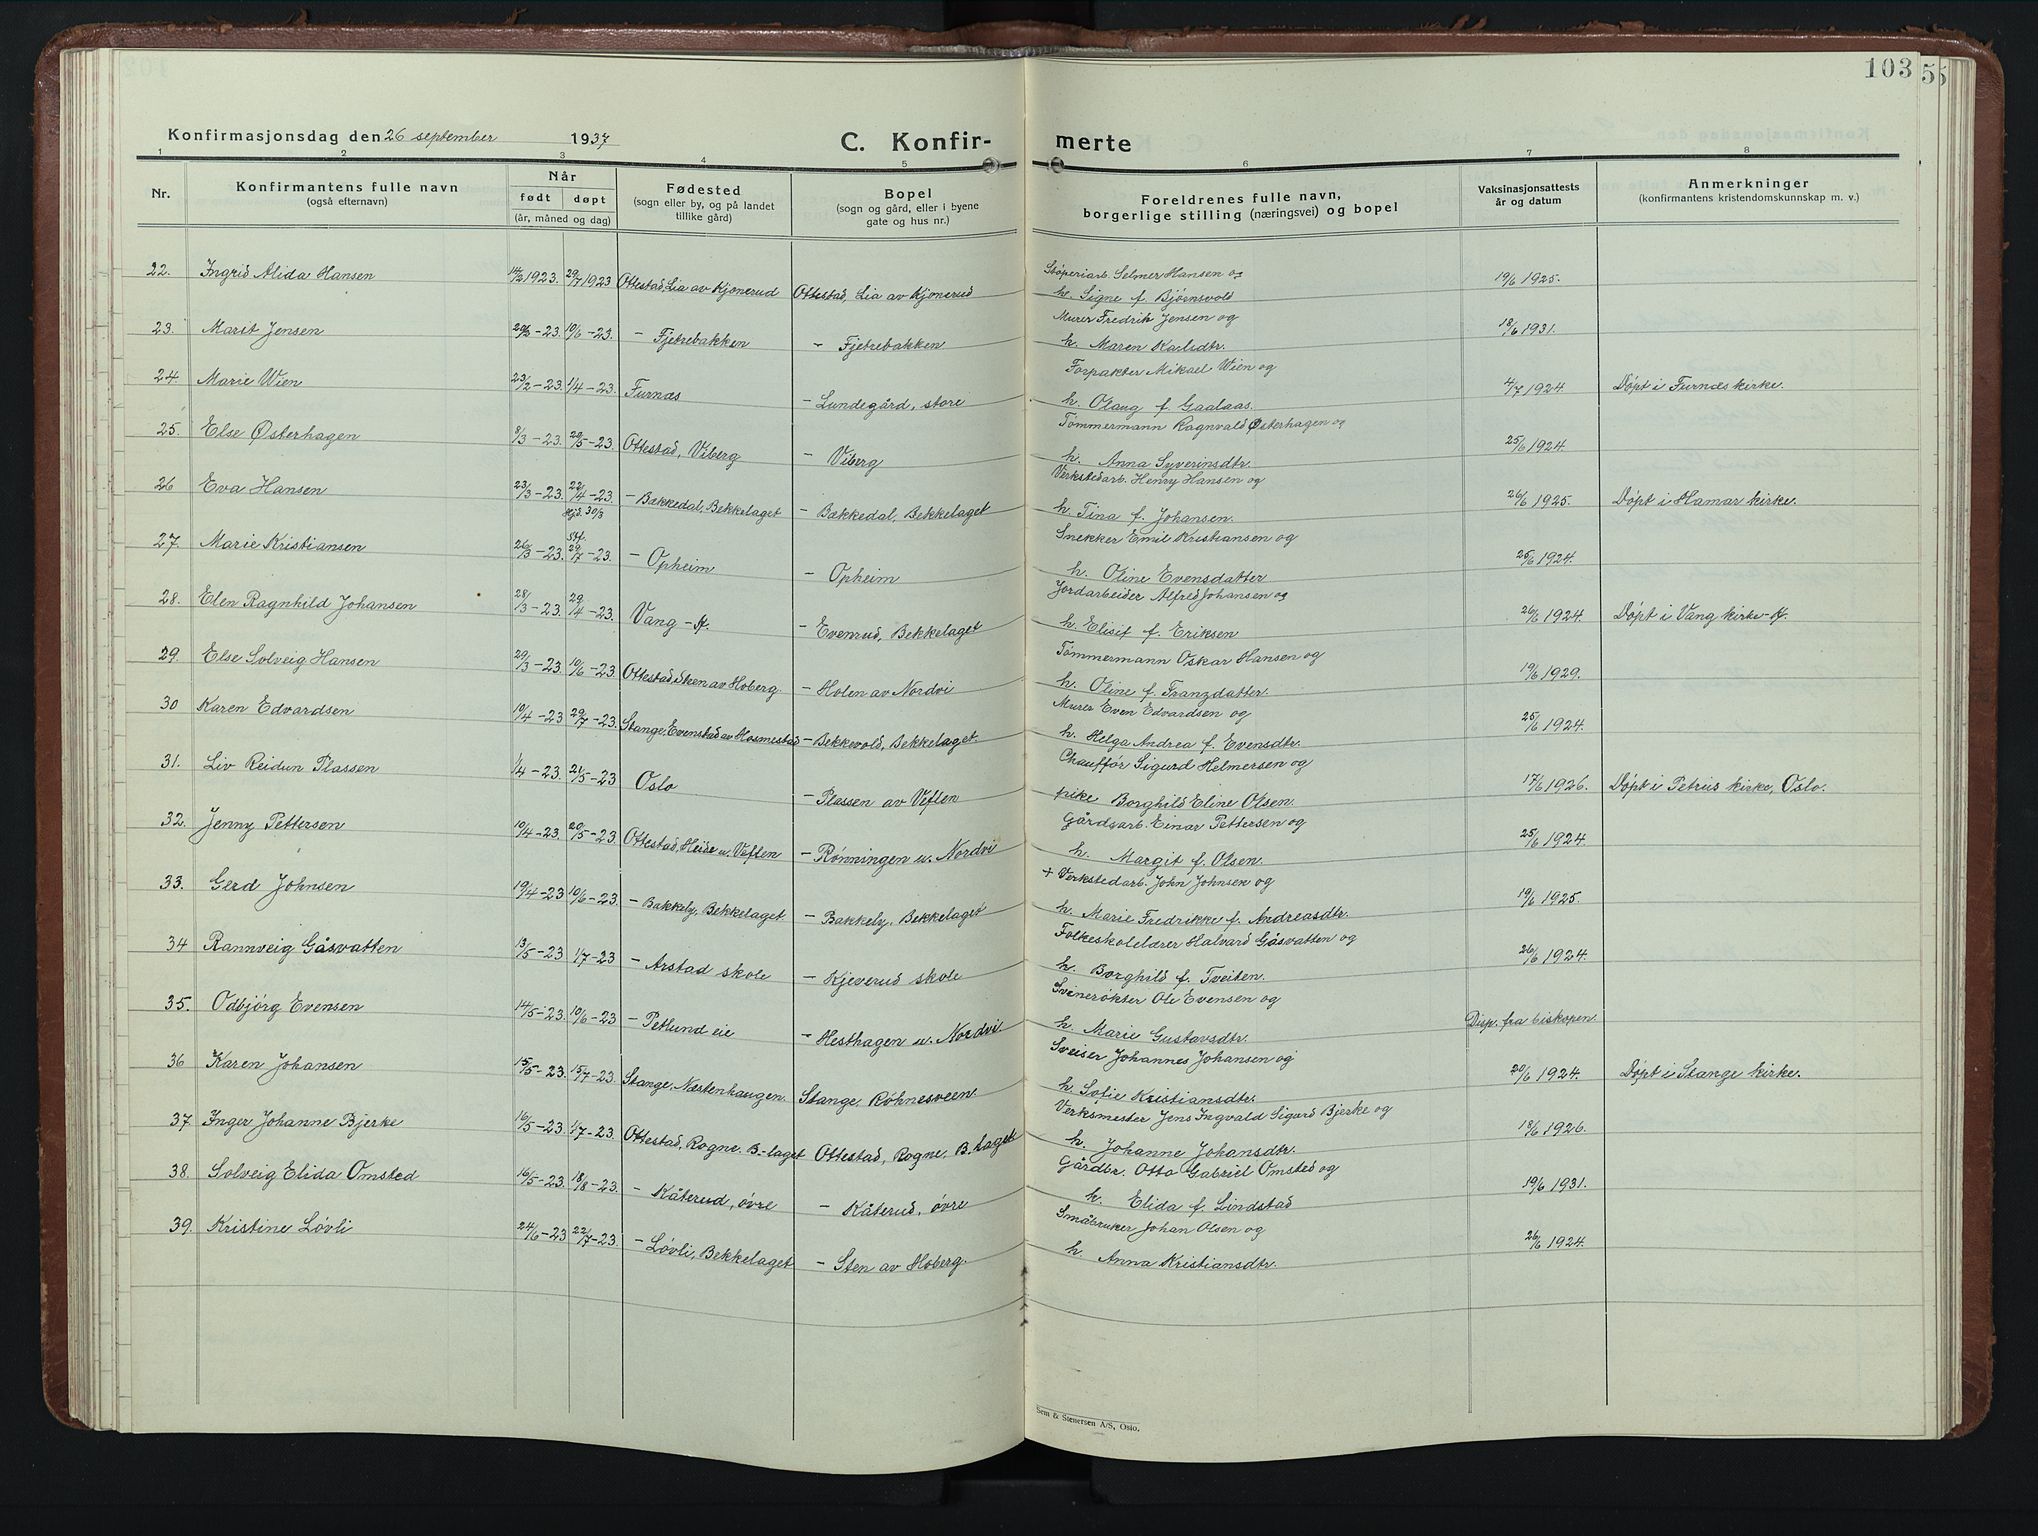 103
55
Konfirmasjonsdag den 26 september 1937
C. Konfir-
merte
1 2 3 4 5 6 7 8
Nr.
Konfirmantens fulle navn
(også efternavn)
Når
født døpt
(år, måned og dag)
Fødested
(sogn eller by, og på landet
tillike gård)
Bopel
(sogn og gård, eller i byene
gate og hus nr.)
Foreldrenes fulle navn,
borgerlige stilling (næringsvei) og bopel
Vaksinasjonsattests
år og datum
Anmerkninger
(konfirmantens kristendomskunnskap m. v.)
22. Ingrid Alida Hansen 14/2 1923. 29/7 1923 Ottestad, Lia av Kjonerud Ottestad, Lia av Kjonerud Støperiarb. Selmer Hansen og
h. Signe f. Bjørnsvold 19/6 1925.
23. Marit Jensen 20/2-23. 10/6-23. - Fjetrebakken - Fjetrebakken Murer Fredrik Jensen og
h. Maren Karlsdtr. 18/6 1931.
24. Marie Wien 23/2-23. 1/4-23. Furnæs - Lundegård, store Forpakter Mikael Wien og
h. Olaug f. Gaalaas. 4/7 1924 Døpt i Furnæs kirke.
25. Else Østerhagen 8/3-23. 20/5-23. Ottestad, Viberg - Viberg Tømmermann Ragnvald Østerhagen og
h. Anna Syverinsdtr. 25/6 1924.
26 Eva Hansen 23/3-23. 22/4-23. - Bakkedal, Bekkelaget - Bakkedal, Bekkelaget Verkstedarb. Henry Hansen og
hjd. 30/3
h. Tina f. Johansen. 26/6 1925. Døpt i Hamar kirke.
27. Marie Kristiansen 26/3-23. Stf. 29/7-23. - Opheim - Opheim Snekker Emil Kristiansen og
h. Oline Evensdatter 25/6 1924.
28. Elen Ragnhild Johansen 28/3-23. 29/4-23. Vang-H. - Evenrud, Bekkelaget Jordarbeider Alfred Johansen og
h. Elisif f. Eriksen 26/6 1924. Døpt i Vang kirke-H.
29. Else Solveig Hansen 29/3-23. 10/6-23. Ottestad, Sten av Hoberg. - Holen av Nordvi Tømmermann Oskar Hansen og
h. Oline f. Franzdatter. 19/6 1929.
30 Karen Edvardsen 10/4-23 29/7-23. Stange, Evenstad av Hosmestad - Bekkevold, Bekkelaget. Murer Even Edvardsen og
h. Helga Andrea f. Evensdtr. 25/6 1924.
31. Liv Reidun Plassen 1/4-23. 21/5-23 Oslo - Plassen av Veflen Chauffør Sigurd Helmersen og
pike Borghild Eline Olsen. 17/6 1926. Døpt i Petrus kirke, Oslo.
32. Jenny Pettersen 10/4-23. 20/5-23. Ottestad, Heide u. Veflen - Rønningen u. Nordvi Gårdsarb. Einar Pettersen og
h. Margit f. Olsen. 25/6 1924.
33. Gerd Johnsen 19/4-23 10/6-23. - Bakkely, Bekkelaget - Bakkely, Bekkelaget + Verkstedarb. John Johnsen og
h. Marie Fredrikke f. Andreasdtr. 19/6 1925.
34 Rannveig Gåsvatten 13/5-23 1/7-23 - Arstad skole - Kjeverud skole Folkeskolelærer Halvard Gåsvatten og
h. Borghild f. Tveiten. 26/6 1924.
35. Odbjørg Evensen 14/5-23. 10/6-23 - Petlund eie - Hesthagen u. Nordvi Svinerøkter Ole Evensen og
h. Marie Gustavsdtr. Disp. fra biskopen.
36 Karen Johansen 15/5-23. 15/7-23. Stange, Næstenhaugen. Stange, Røhnesveen. Sveiser Johannes Johansen og
h. Sofie Kristiansdtr. 20/6 1924. Døpt i Stange kirke.
37 Inger Johanne Bjerke 16/5-23. 1/7-23. Ottestad, Rogne. B-laget Ottestad, Rogne. B.laget Verksmester Jens Ingvald Sigurd Bjerke og
h. Johanne Johansdtr. 18/6 1926.
38. Solveig Elida Omsted 16/5-23. 18/8-23. - Kåterud, øvre - Kåterud, øvre Gårdbr. Otto Gabriel Omsted og
h. Elida f. Lindstad 19/6 1931.
39. Kristine Løvli 24/6-23 22/7-23. - Løvli, Bekkelaget - Sten av Hoberg. Småbruker Johan Olsen og
h. Anna Kristiansdtr. 26/6 1924.
Sem & Stenersen A/S, Oslo.